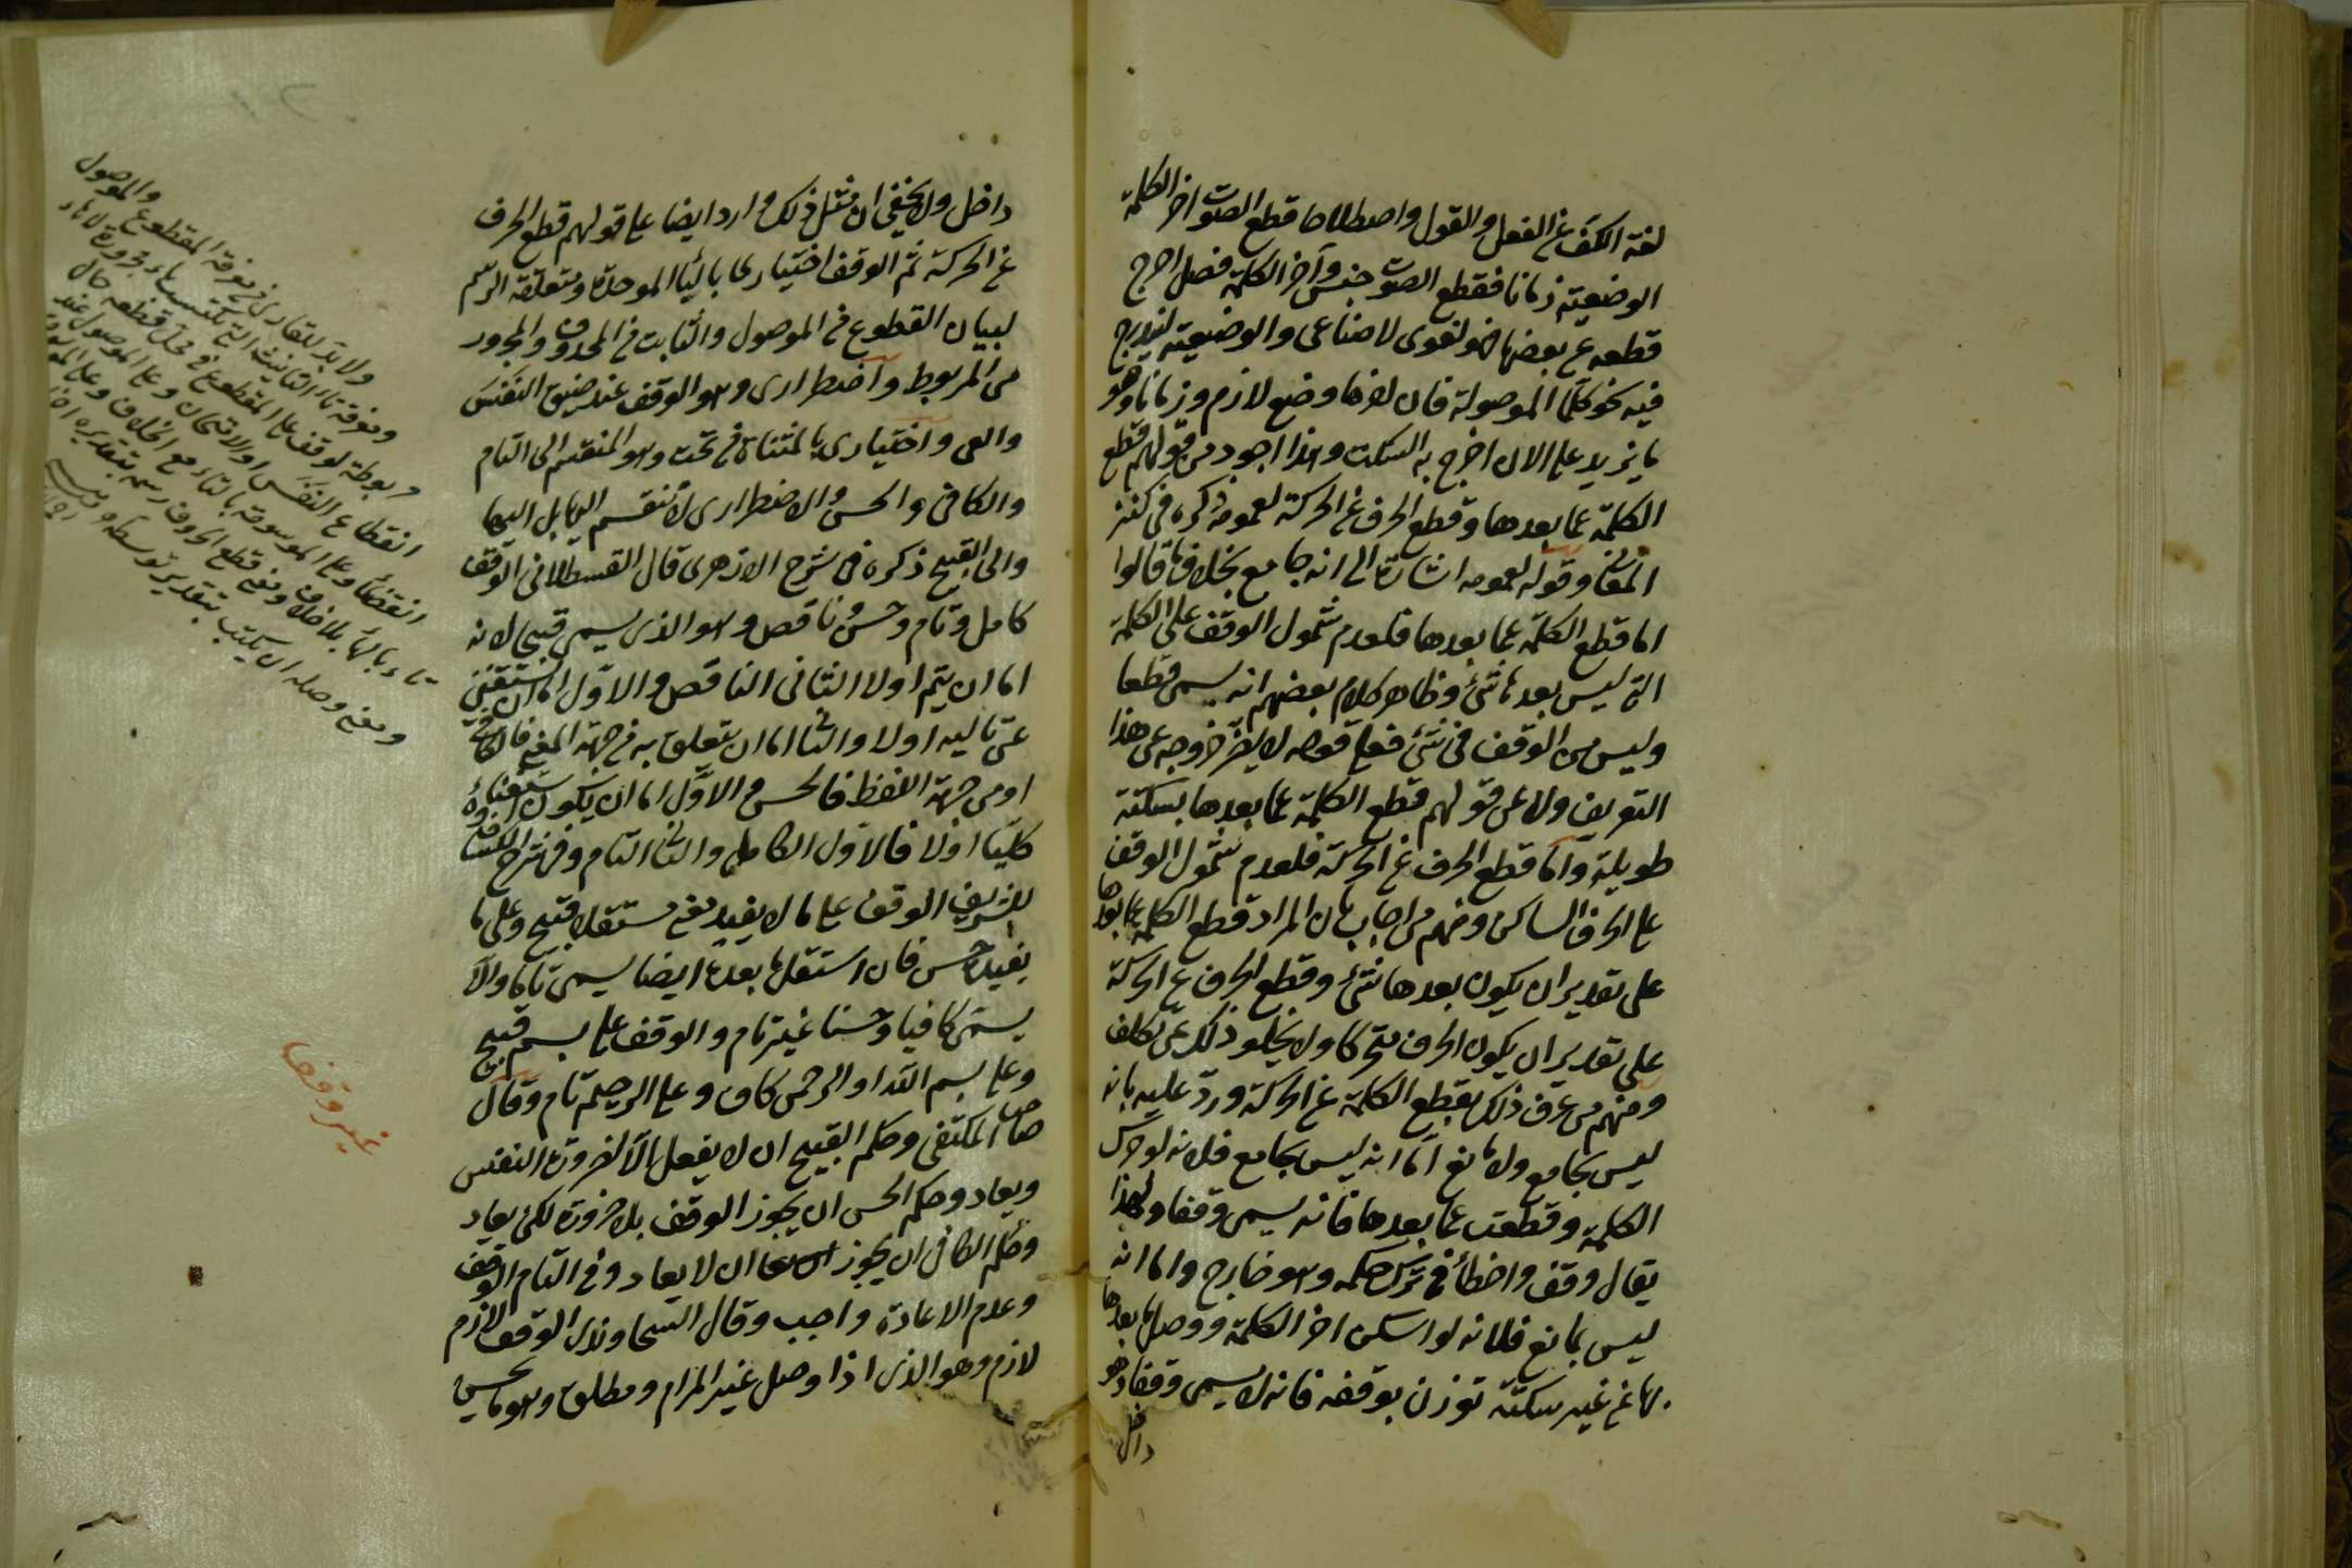 لغة الكف عن الفعل والقول واصطلاحا قطع الصوت اخر الكلمة
الوضعية زمانا فقطع الصوت جنس وآخر الكلمة فصل اخرج
قطعه على بعضها فهو لغوى لا صناعى والوضعية ليندرج
فيه نحو كلما الموصولة فان اخرها وضع لازم وزمانا وهو
ما يزيد على الان اخرج به السكت وهذا اجود من قولهم قطع
الكلمة عما بعدها وقطع الحرف عن الحركة لعمومه ذكره فى كنز
المعانى وقوله لعمومه اشارة الى انه جامع بخلاف ما قالوا
اما قطع الكلمة عما بعدها فلعدم شمول الوقف على الكلمة
التى ليس بعدها شئ وظاهر كلام بعضهم انه يسمى قطعا
وليس من الوقف فى شئ فعلى قوله لا يضر خروجه عن هذا
التعريف ولا عن قولهم قطع الكلمة عما بعدها بسكتة
طويلة واما قطع الحرف عن الحركة فلعدم شمول الوقف
على الحرف الساكن ومنهم من اجاب بان المراد قطع الكلمة عما بعدها
على تقدير ان يكون بعدها شئ وقطع الحرف عن الحركة
على تقدير ان يكون الحرف متحركا ولا يخلو ذلك عن تكلف
ومنهم من عرف ذلك بقطع الكلمة عن الحركة ورد عليه بانه
ليس بجامع ولا مانع اما انه ليس بجامع فلانه لو حرك
الكلمة وقطعت عما بعدها فانه يسمى وقفا ولهذا
يقال وقف واخطأ فى ترك حكمه وهو خارج واما انه
ليس بمانع فلانه لو اسكن اخر الكلمة ووصل ما بعدها
بها من غير سكتة توذن بوقفه فانه لا يسمى وقفا وهو
داخل
داخل ولا يخفى ان مثل ذلك وارد ايضا على قولهم قطع الحرف
عن الحركة ثم الوقف اختبارى بالباء الموحدة ومتعلقه الرسم
لبيان المقطوع من الموصول والثابت من المحذوف والمجرور
من المربوط واضطرارى وهو الوقف عند ضيق النفس
والعى واختيارى بالمثناة من تحت وهو المنقسم الى التام
والكافى والحسن والاضطرارى لا ينقسم اليها بل اليها
والى القبيح ذكره فى شرح الازهرى قال القسطلانى الوقف
كامل وتام وحسن وناقص وهو الذى يسمى قبيحا لانه
اما ان يتم اولا الثانى الناقص والاول اما ان يستغنى
عن تاليه اولا والثانى اما ان يتعلق به من جهة المعنى فالكافى
او من جهة اللفظ فالحسن والاول اما ان يكون استغناؤه
كليا اولا فالاول الكامل والثانى التام وفى شرح
الشريف الوقف على ما لا يفيد معنى مستقلا قبيح وعلى ما
يفيد حسن فان استقل ما بعده ايضا يسمى تاما والا
يسمى كافيا وحسنا غير تام والوقف على بسم قبيح
وعلى بسم الله او الرحمن كاف وعلى الرحيم تام وقال
صاحب المكتفى وحكم القبيح ان لا يفعل الا لضرورة النفس
ويعاد وحكم الحسن ان يجوز الوقف بلا ضرورة لكن يعاد
وحكم الكافى ان يجوز ان لا يعاد وفى التام الوقف
وعدم الاعادة واجب وقال السجاوندى الوقف لازم
لازم وهو الذى اذا وصل غير المرام ومطلق وهو ما يحسن
ولا بد للقارى من معرفة المقطوع والموصول
ومعرفة تاء التانيث التى تكتب تاء مجرورة لا هاء
مربوطة لوقف على المقطوع فى محل قطعه حال
انقطاع النفس او الامتحان وعلى الموصول عند
انقضائه وعلى المرسومة بالتاء مع الخلاف
تاء بالهاء بلا خلاف ومعنى قطع الحروف رسمه بتقدير
ومعنى وصله ان يكتب بتقدير توسطه
غير وقف